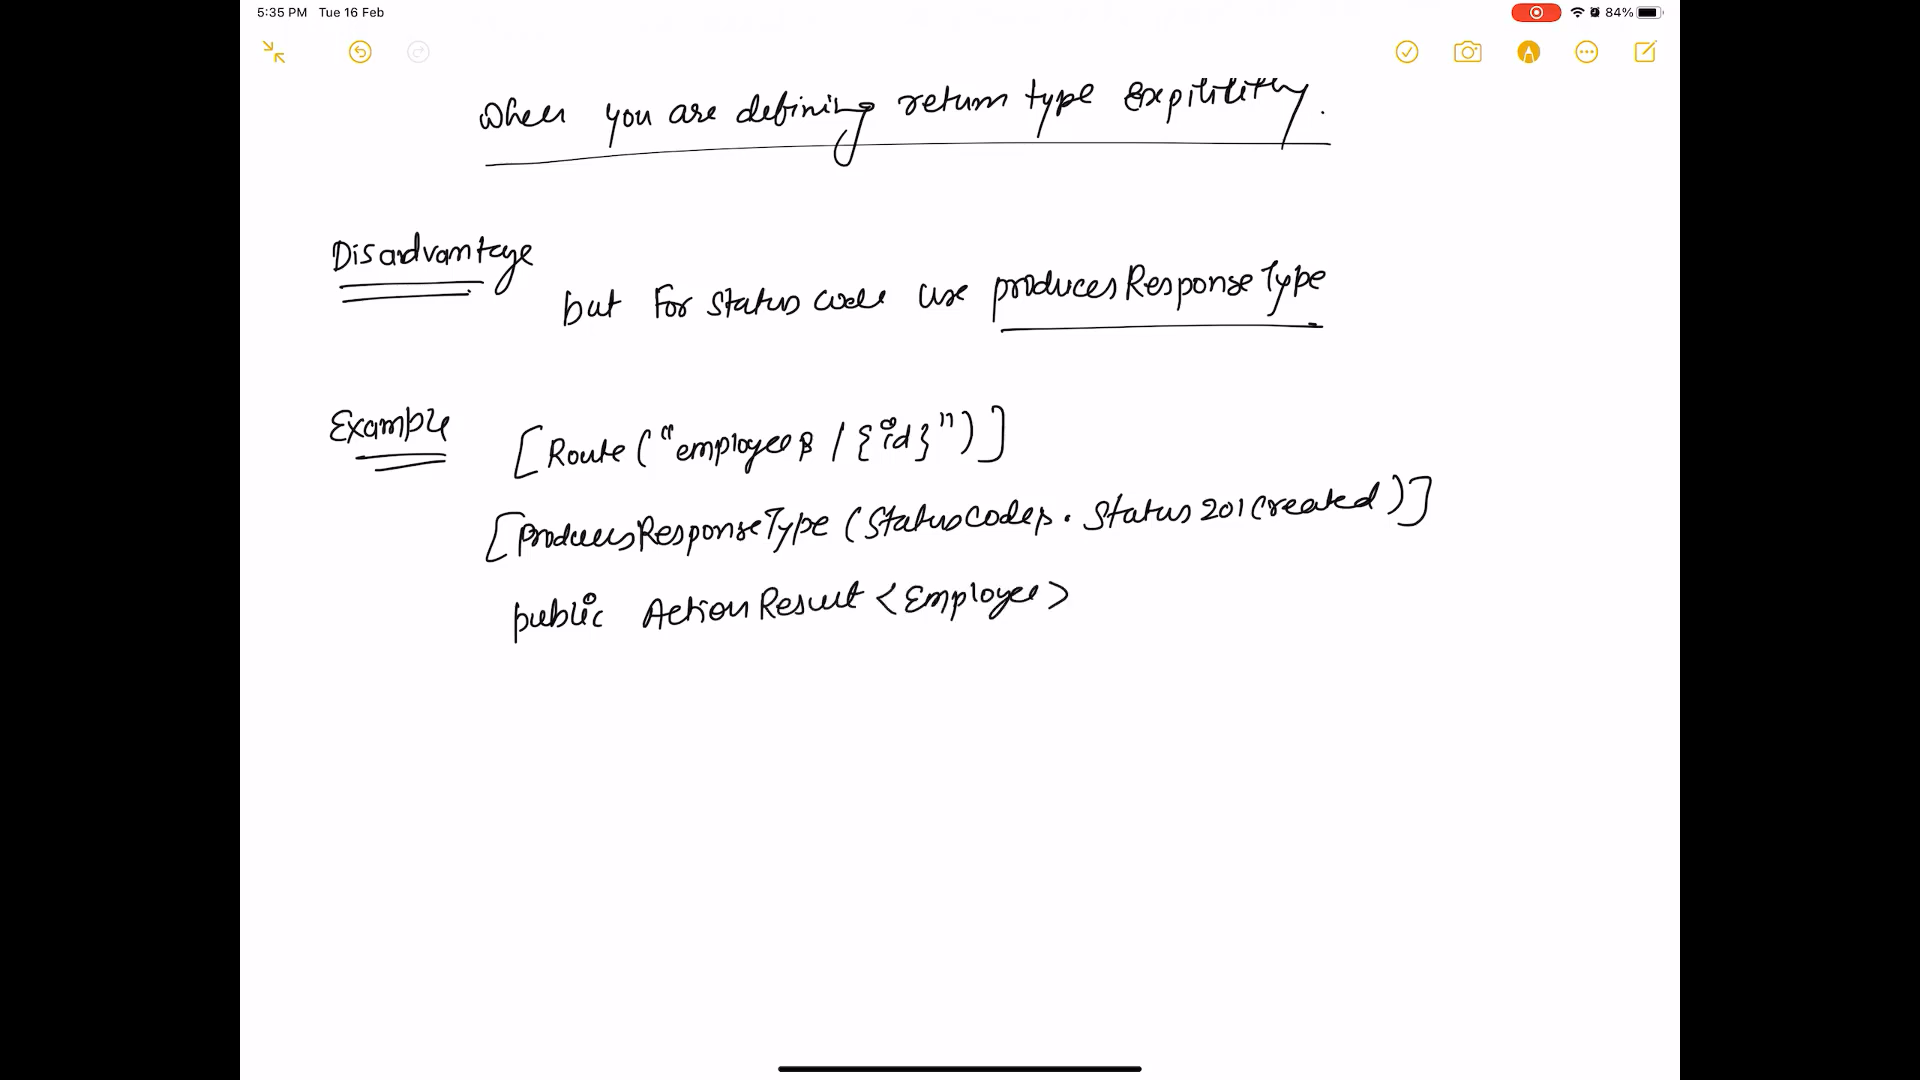 5:35 PM Tue 16 Feb
84%
When you are defining return type Expilitithy.
Disadvantage
but For Status code use producesResponseType
Example
[Route("employees/{id}")]
[ProducesResponseType(StatusCodes.Status201Created)]
public ActionResult<Employee>